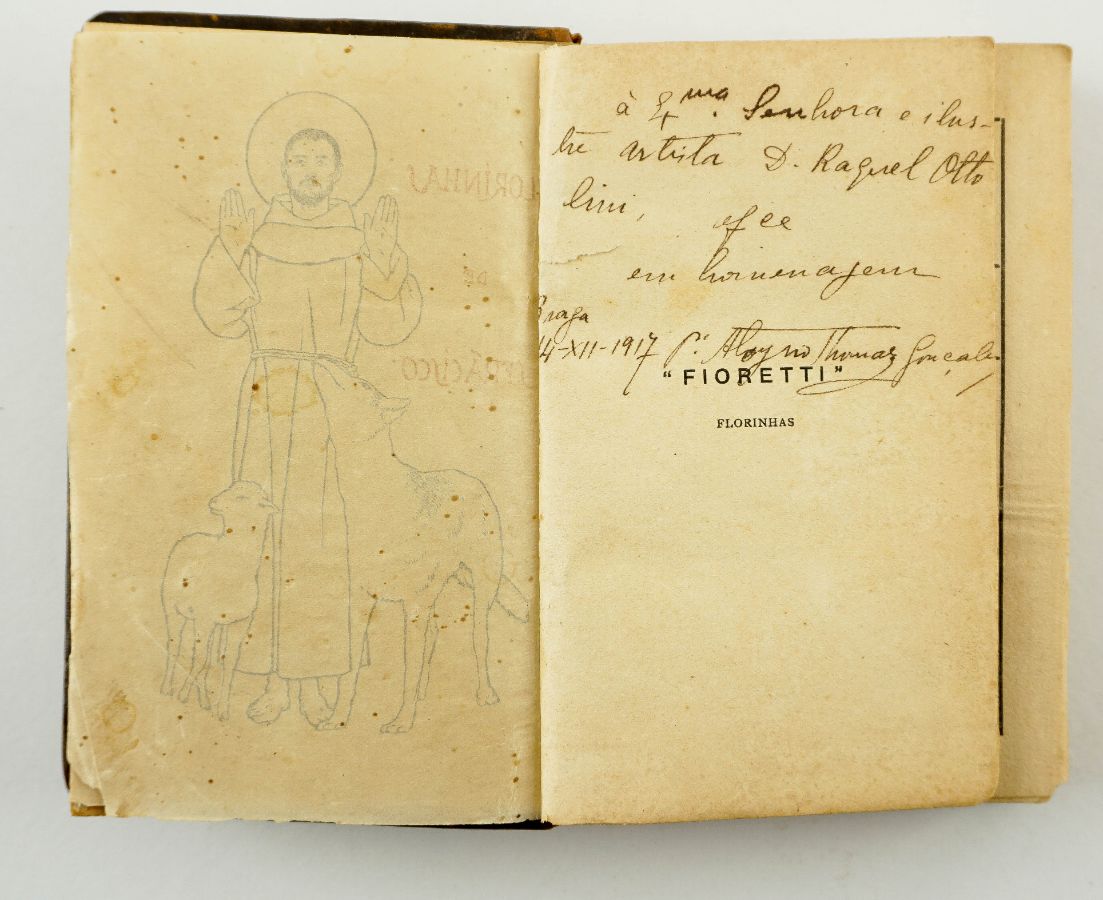 LORINHAS
DE
à Exma. Senhora e ilus-
tre artista D. Raquel Otto
lini,
ofce
em homenagem
Braga
14-XII-1917 P.e Aloysio Thomaz Gonçalves
“FIORETTI”
FLORINHAS